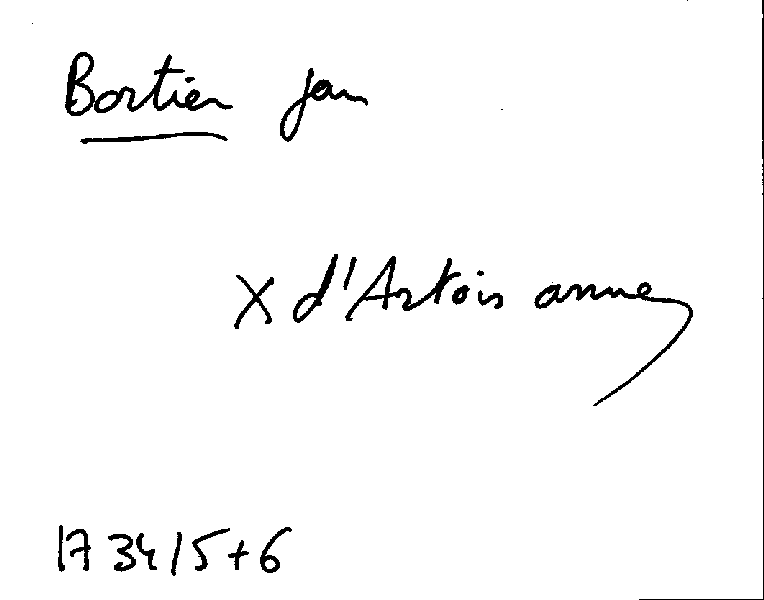 Bortier Jan
X d'Artois anne
17 34 15+6